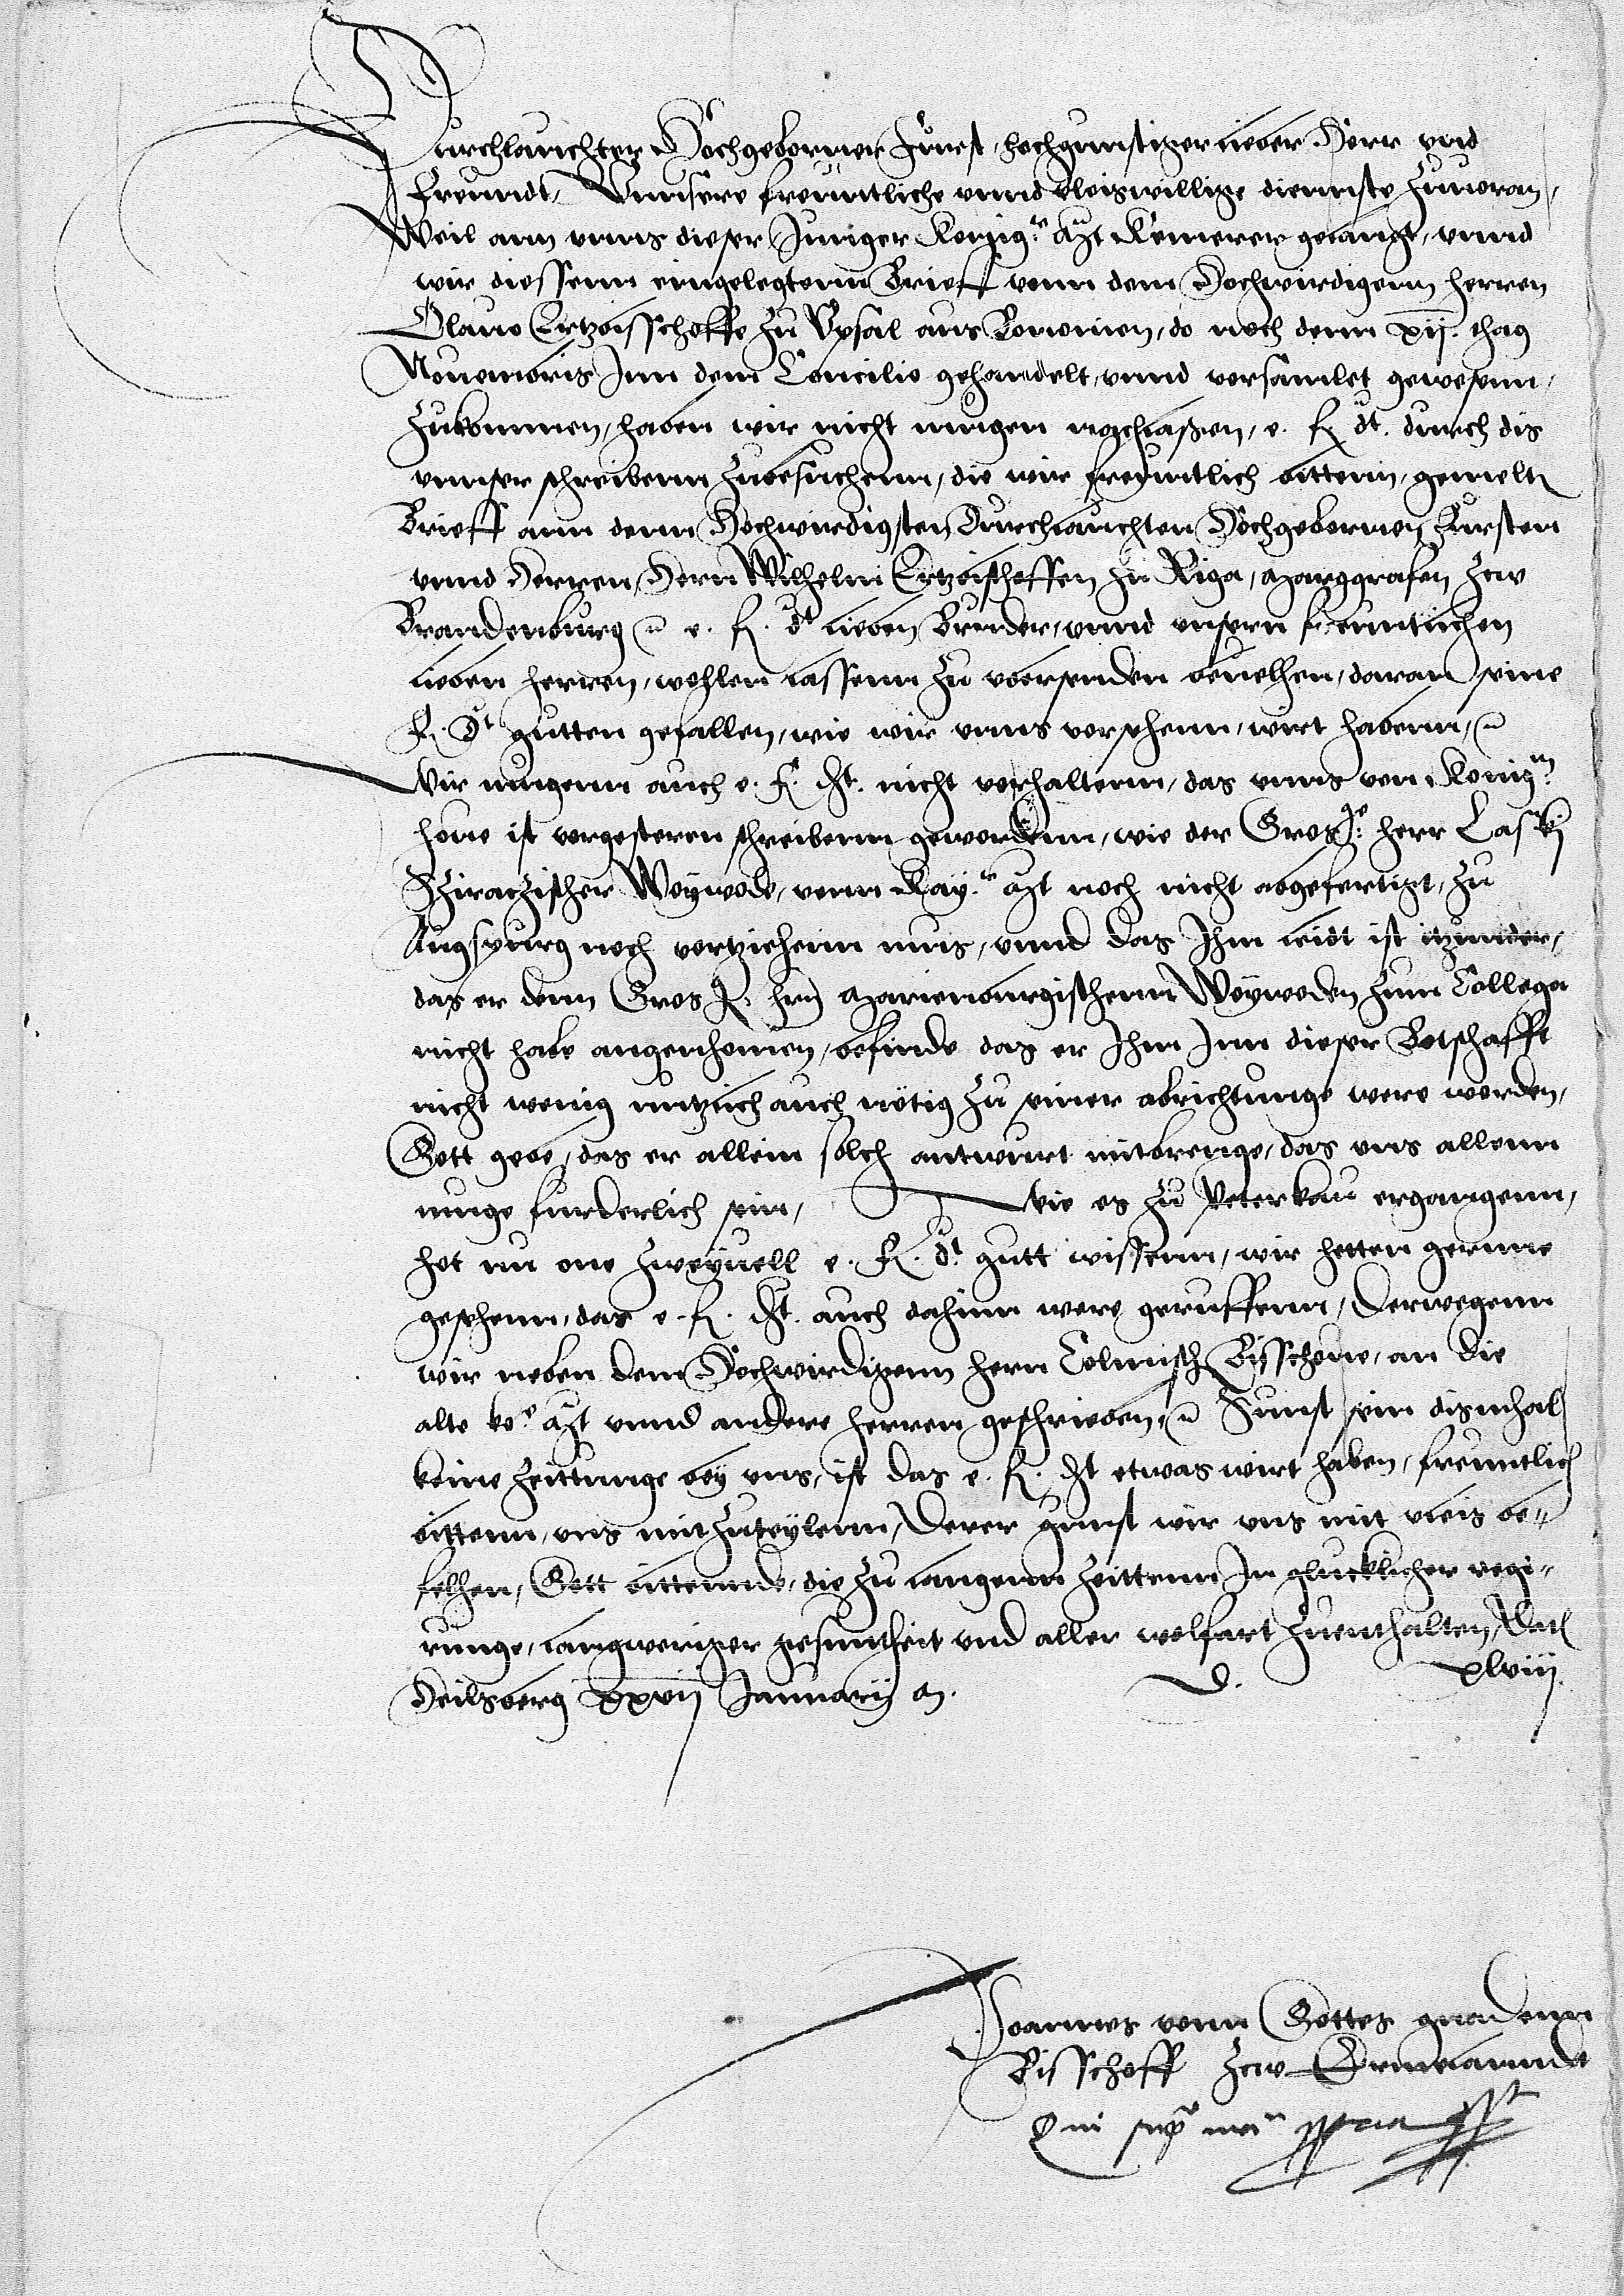 Durchlauchter Hochgeborner Furst, hochgunstiger lieber Herr vnd
freundt, Vnnsere freuntliche vnnd vleiswillige diennste zuuoran,
Weil ann vnns dieser Junger Konigr Mt Kemerer gelangt, vnnd
wir diessenn eingelegtenn Brieff vonn dem Hochwirdigenn herren
Olauo Ertzbisschoffe zu Vpsal aus Bononien, do noch denn xij. thag
Nouembris Inn dem Concilio gehandelt, vnnd versamlet gewesenn,
zukommen, haben wir nicht mugen nachlassen, e. f. dt. durch dis
vnnser schreibenn zubesuchenn, die wir freuntlich bittenn, gemelte
Brieff ann denn Hochwirdigsten Durchlauchten Hochgebornen Fursten
vnnd Herren, Hern Wilhelm Ertzbischoffen zu Riga, Marggrafen zcw
Brandenburg e. f. dt lieben Bruder, vnnd vnsern freuntlichen
lieben herren, wohlen lassenn zu vbersenden beuelhen, daran seine
f. dt gutten gefallen, wie wir vnns versehenn, wirt habenn,
Wir mugenn auch e. f. dt. nicht verhaltenn, das vnns von Konign
houe ist vorgesteren schreibenn gewordenn, wie der Grosge herr Laski
Sziraczischer Woywode, vonn Kayr Mt noch nicht abgefertigt, zu
Augspurg noch vertziehenn mus, vnnd das Ihm leidt ist itzunder,
das er denn Grosg. hern Marienburgischenn Woywoden zum Collega
nicht habe angenhomen, befinde das er Ihm Inn dieser Botschafft
nicht wenig nutzlich auch nötig zu seiner abrichtunge were worden,
Gott gebe, das er allein solch antwurt mitbrenge, das vns allenn
muge furderlich sein, Wie es zu Peterkau ergangenn,
hot nu one zweyuell e. f. dt gutt wissenn, wir hetten gernne
gesehenn, das e. f. dt. auch dahinn were geruffenn, Derwegenn
wir neben dem Hochwirdigenn hern Colmisch Bisschoue, an die
alte koe Mt vnnd andere herren geschrieben, Sunst sein dismhal
keine zeittunge bey vns, ist das e. f. dt etwas wirt haben, freuntlich
bittenn, vns mitzuteylenn, Derer gunst wir vns mit vleis be-
felhen, Gott bittennde, die zu langenn zeittenn In glucklicher regi-
runge, langweriger gesuntheit vnd aller wolfart zuenthalten, Dat
Heilsberg xxvij Januarij A. D. xlviij.
Joannes vonn Gottes gnadenn
Bisschoff zcw Ermelanndt